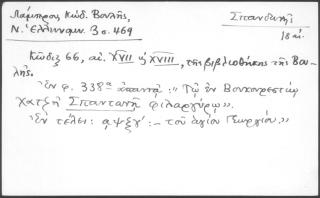 Λάμπρος, Κώδ. Βουλῆς, Σπανδωνῆ
Ν. Ἑλληνομν. 3 σ. 469 18 αἰ.
Κῶδιξ 66, αἰ. XVII ἢ XVIII, τῆς βιβλιοθήκης τῆς Βου-
λῆς.
Ἐν φ. 338α : "Τῷ ἐν Βουκορεστίῳ
χατζῆ Σπαντωνῆ φιλαργύρῳ».
Ἐν τέλει: αψξγ´:- τοῦ ἁγίου Γεωργίου»